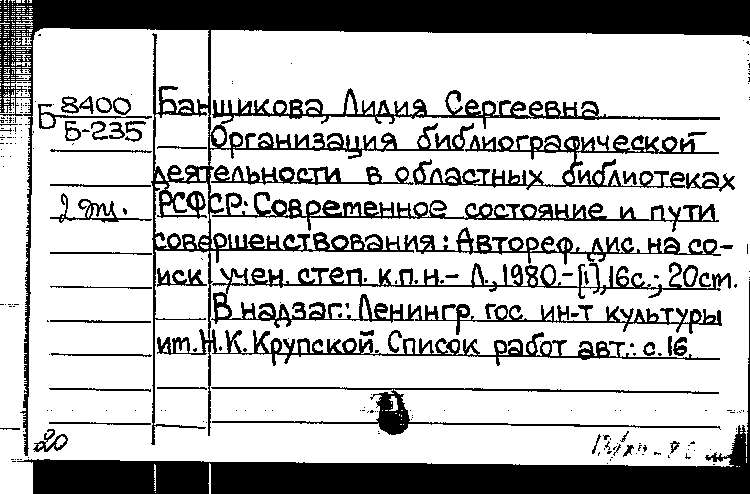 Б 8400
Б-235
2 экз.
Банщикова, Лидия Сергеевна.
Организация библиографической
деятельности в областных библиотеках
РСФСР: Современное состояние и пути
совершенствования: Автореф. дис. на со-
иск. учен. степ. к.п.н.- Л., 1980.-[1], 16с.; 20см.
В надзаг.: Ленингр. гос. ин-т культуры
им. Н.К. Крупской. Список работ авт.: с.16.
20